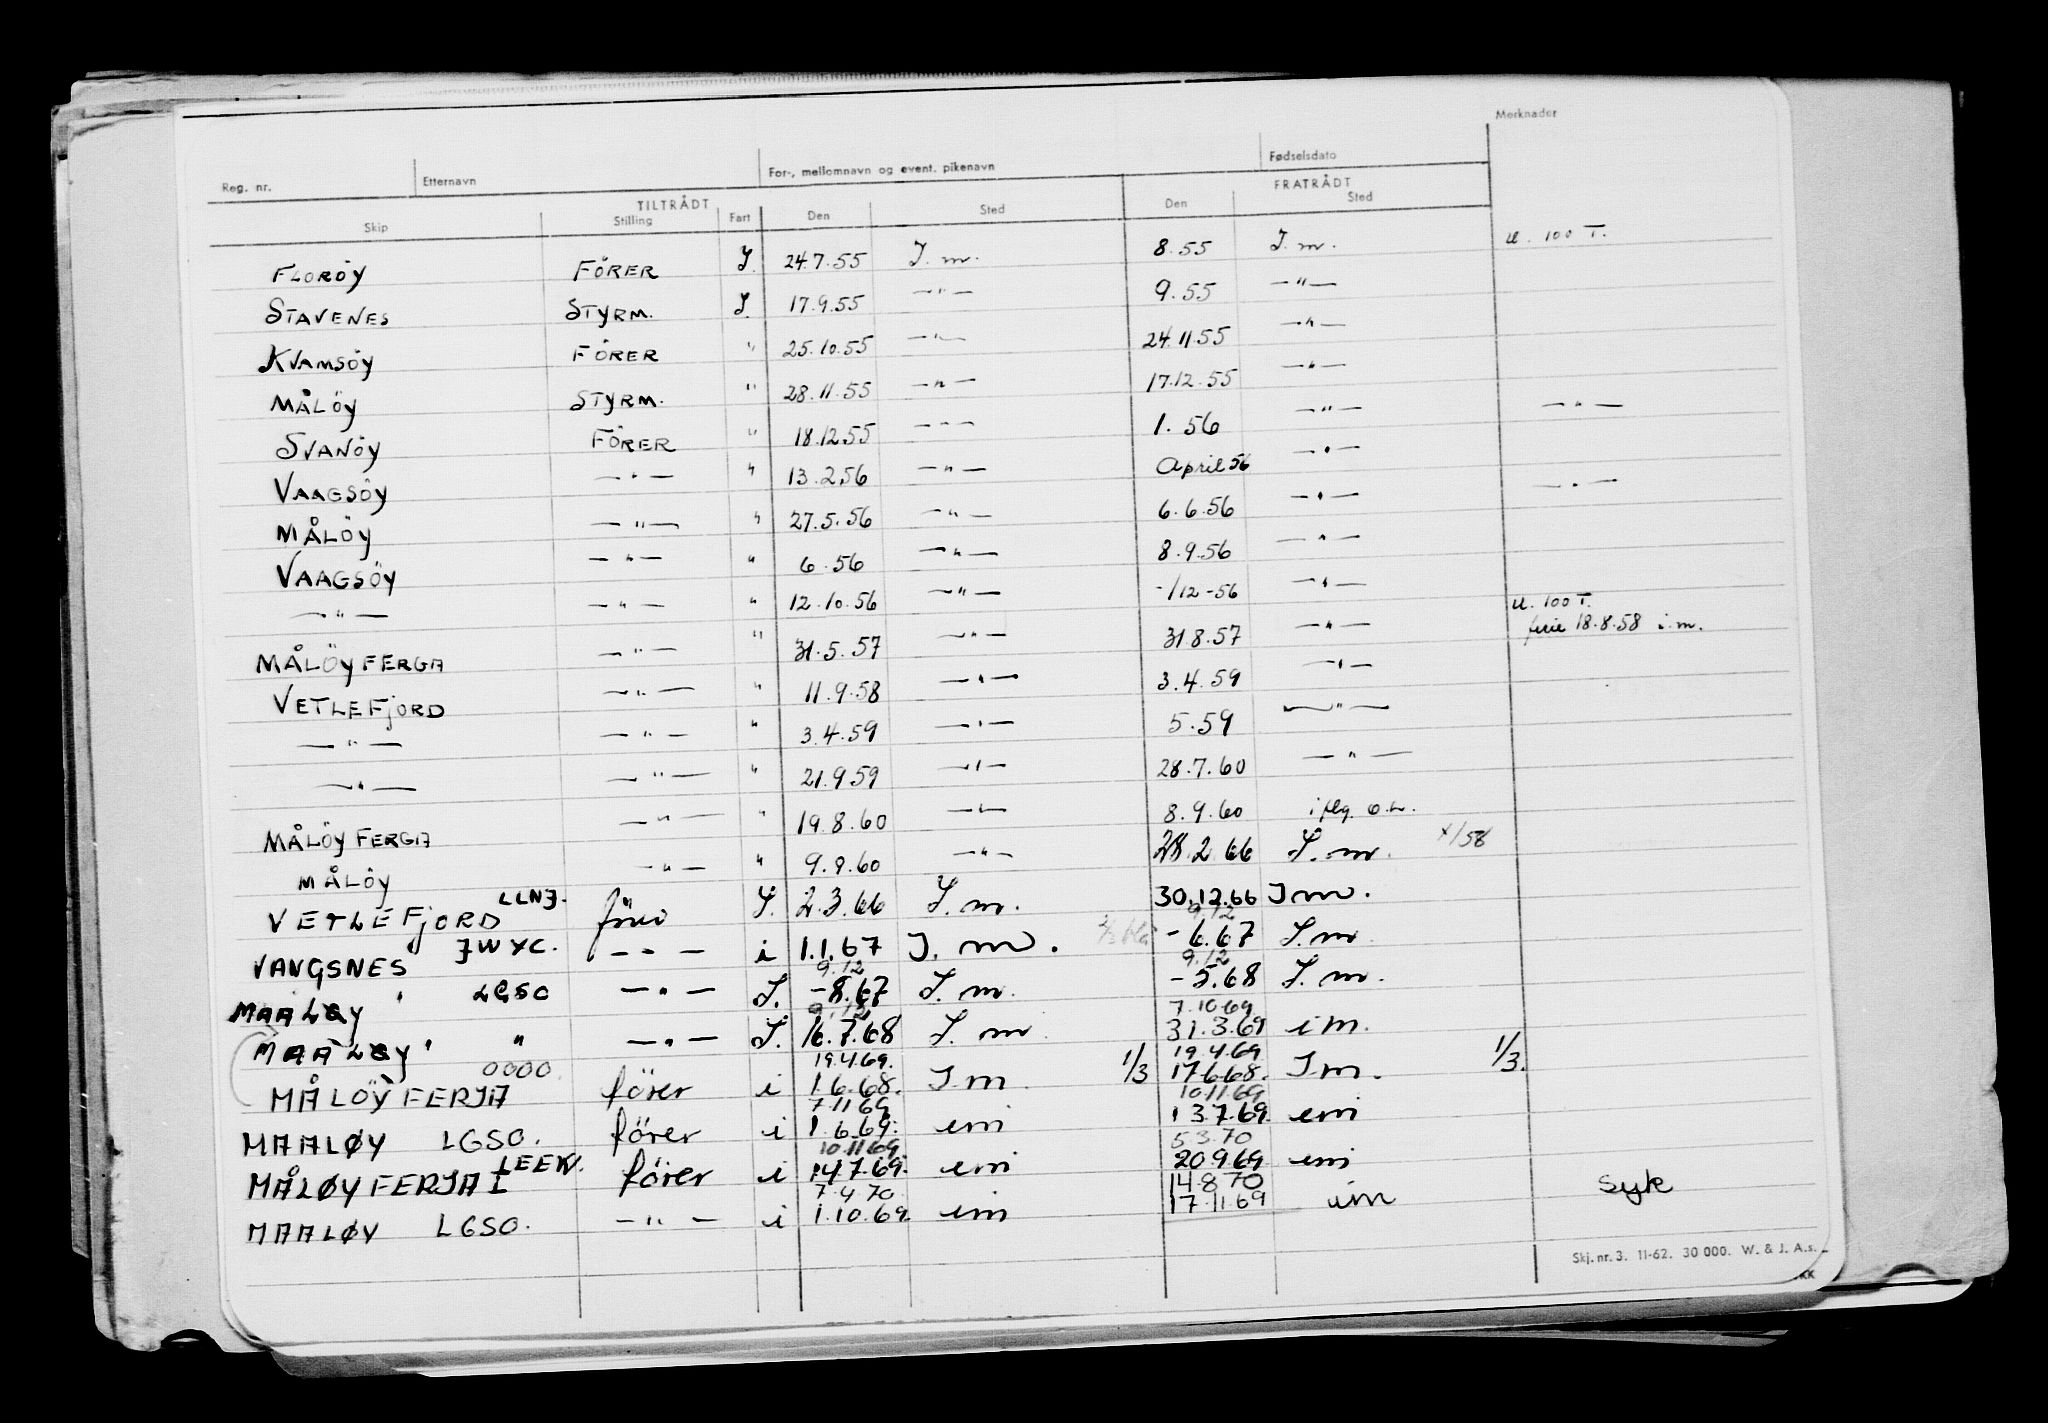 Merknader
Reg. nr. Etternavn For-, mellomnavn og event. pikenavn Fødselsdato
TILTRÅDT FRATRÅDT
Skip Stilling Fart Den Sted Den Sted
FLORÖY FÖRER I. 24.7.55 I. m. 8.55 I. m. u. 100 T.
STAVENES STYRM. I. 17.9.55 —"— 9.55 —"—
KVAMSÖY FÖRER " 25.10.55 —"— 24.11.55 —"—
MÅLÖY STYRM. " 28.11.55 —"— 17.12.55 —"—
SVANÖY FÖRER " 18.12.55 —"— 1.56 —"— —"—
VAAGSÖY —"— " 13.2.56 —"— April 56 —"—
MÅLÖY —"— " 27.5.56 —"— 6.6.56 —"— —"—
VAAGSÖY —"— " 6.56 —"— 8.9.56 —"—
—"— —"— " 12.10.56 —"— -/12-56 —"—
MÅLÖY FERGA —"— " 31.5.57 —"— 31.8.57 —"— u. 100 T.
ferie 18.8.58 i.m.
VETLEFJORD —"— " 11.9.58 —"— 3.4.59 —"—
—"— —"— " 3.4.59 —"— 5.59 —"—
—"— —"— " 21.9.59 —"— 28.7.60 —"—
MÅLÖY FERGA —"— " 19.8.60 —"— 8.9.60 i flg.
MÅLÖY —"— " 9.9.60 —"— 28.2.66 I. m. x/58
VETLEFJORD LLNJ. förer I. 2.3.66 I. m. 30.12.66 I m.
9.12
VANGSNES JWYC. —"— i 1.1.67 I. m. - 6.67 I. m
9.12 9.12
MAALØY LGSO —"— I. -8.67 I. m. -5.68 I. m.
9.12 7.10.69
MAALØY " —"— I. 16.7.68 I. m 31.3.69 i m.
0000 19.4.69. 19.4.69
MÅLÖY FERJA förer i 1.6.68. I m 1/3 17.6.68. I m. 1/3.
7.11.69 10.11.69
MAALØY LGSO. förer i 1.6.69. im 13.7.69. im
10.11.69 5.3.70
MÅLØY FERJA I LEEW. förer i 14.7.69. im 20.9.69. im
7.4.70 14.8.70
MAALØY LGSO. —"— i 1.10.69. im 17.11.69 im syk
Skj. nr. 3. 11-62. 30 000. W. & J. A.s.